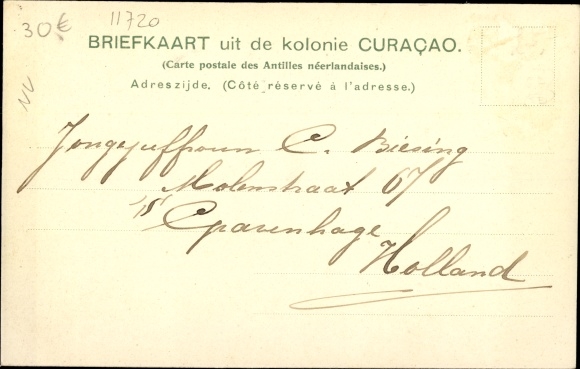 30 € 11720
BRIEFKAART uit de kolonie CURAÇAO.
(Carte postale des Antilles néerlandaises.)
Adreszijde. (Côté réservé à l'adresse.)
Jongejuffrouw C. Biesing
Molenstraat 67
'S Gravenhage
Holland